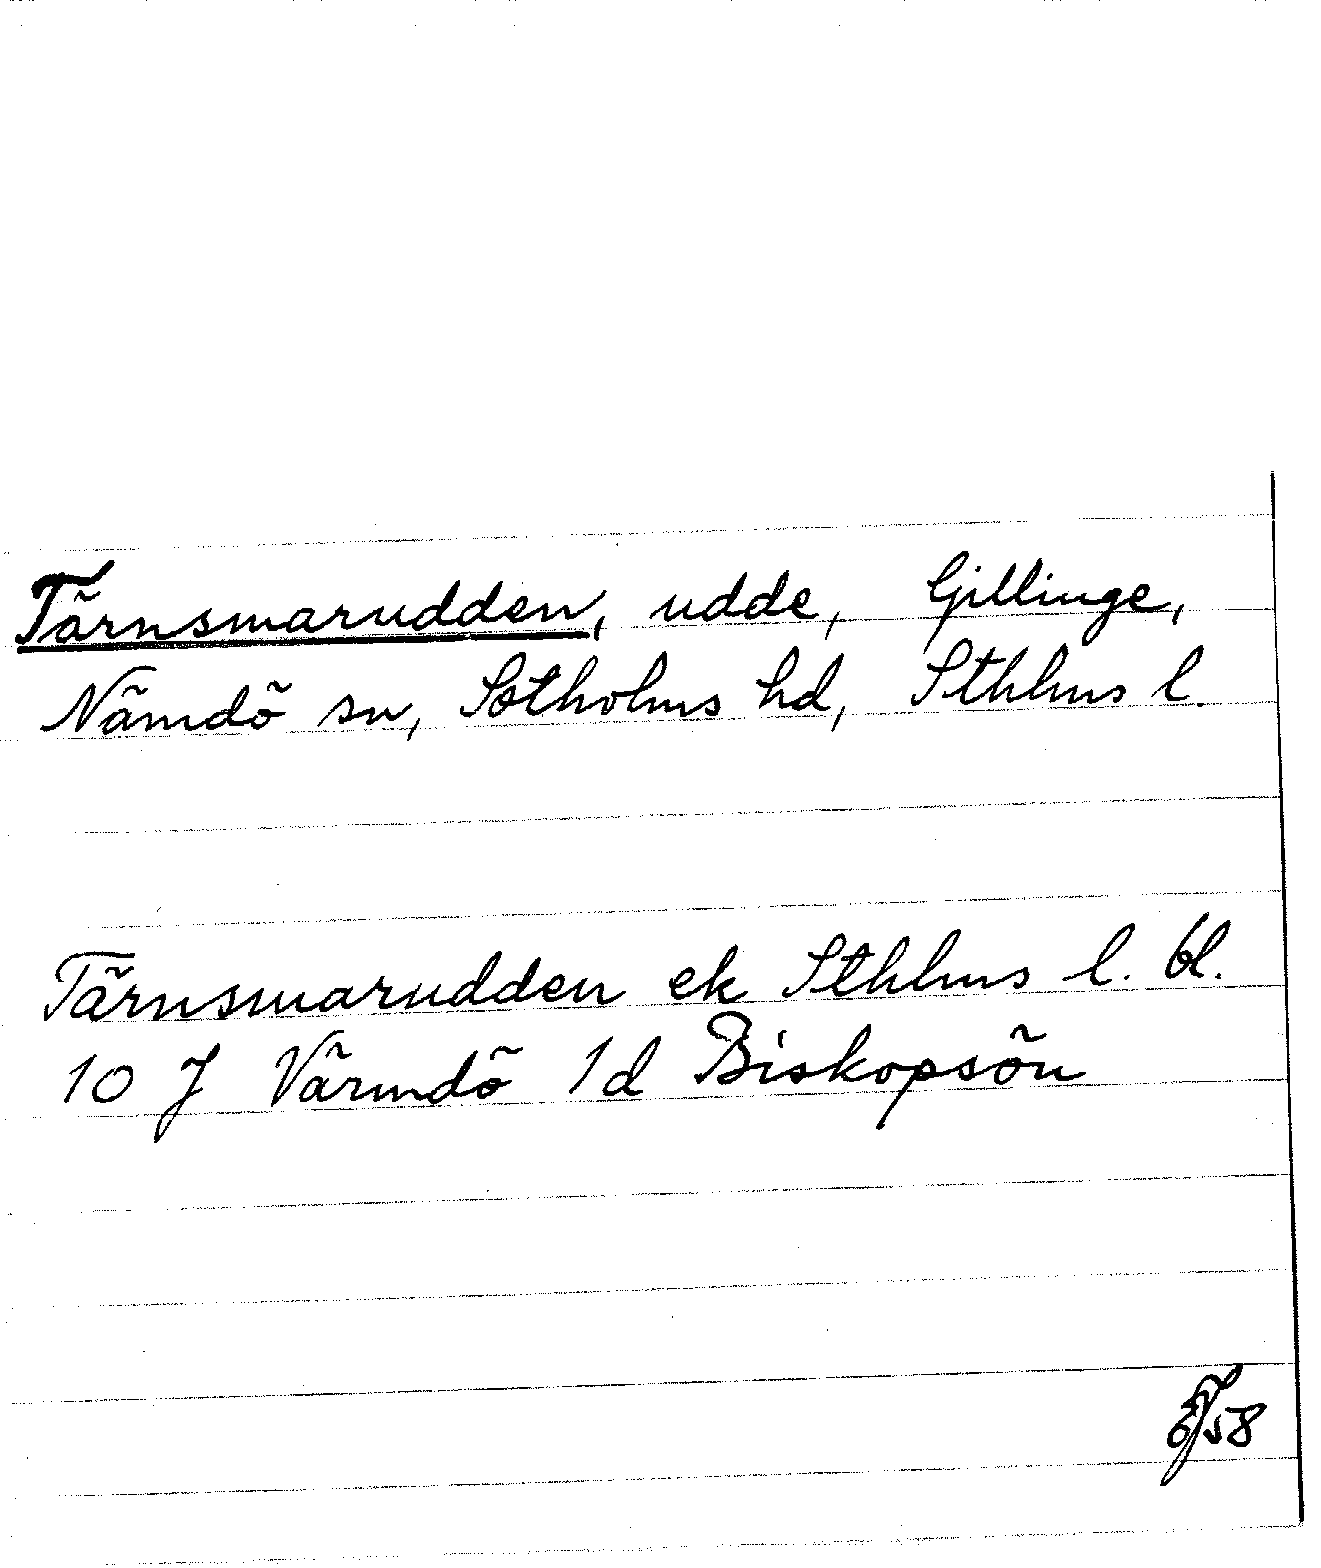 Tärnsmarudden, udde, Gillinge,
Nämdö sn, Sotholms hd, Sthlms l.
Tärnsmarudden ek Sthlms l. bl.
10 J Värmdö 1d Biskopsön
58